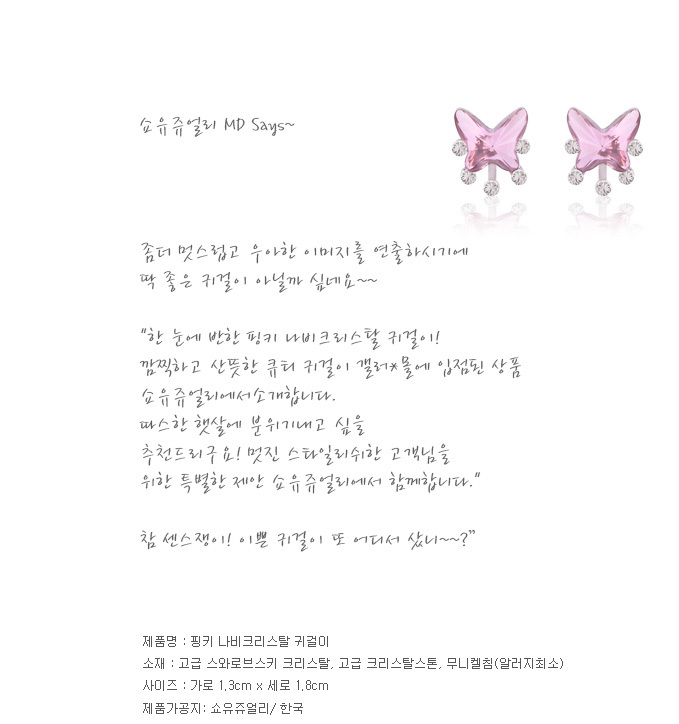 쇼유쥬얼리 MD Says~
좀더 멋스럽고 우아한 이미지를 연출하시기에
딱 좋은 귀걸이 아닐까 싶네요~~
"한 눈에 반한 핑키 나비크리스탈 귀걸이!
깜찍하고 산뜻한 큐티 귀걸이 갤러*몰에 입점된 상품
쇼유쥬얼리에서소개합니다.
따스한 햇살에 분위기내고 싶을
추천드리구요! 멋진 스타일리쉬한 고객님을
위한 특별한 제안 쇼유쥬얼리에서 함께합니다."
참 센스쟁이! 이쁜 귀걸이 또 어디서 샀니~~?"
제품명 : 핑키 나비크리스탈 귀걸이
소재 : 고급 스와로브스키 크리스탈, 고급 크리스탈스톤, 무니켈침(알러지최소)
사이즈 : 가로 1.3cm x 세로 1.8cm
제품가공지: 쇼유쥬얼리/ 한국